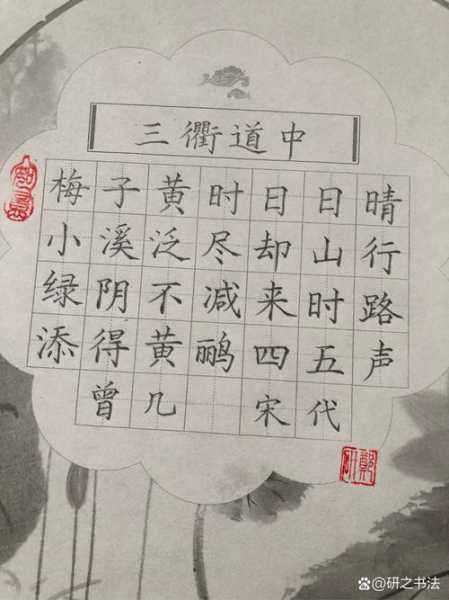 三衢道中
梅子黄时日日晴
小溪泛尽却山行
绿阴不减来时路
添得黄鹂四五声
曾几 宋代
@研之书法